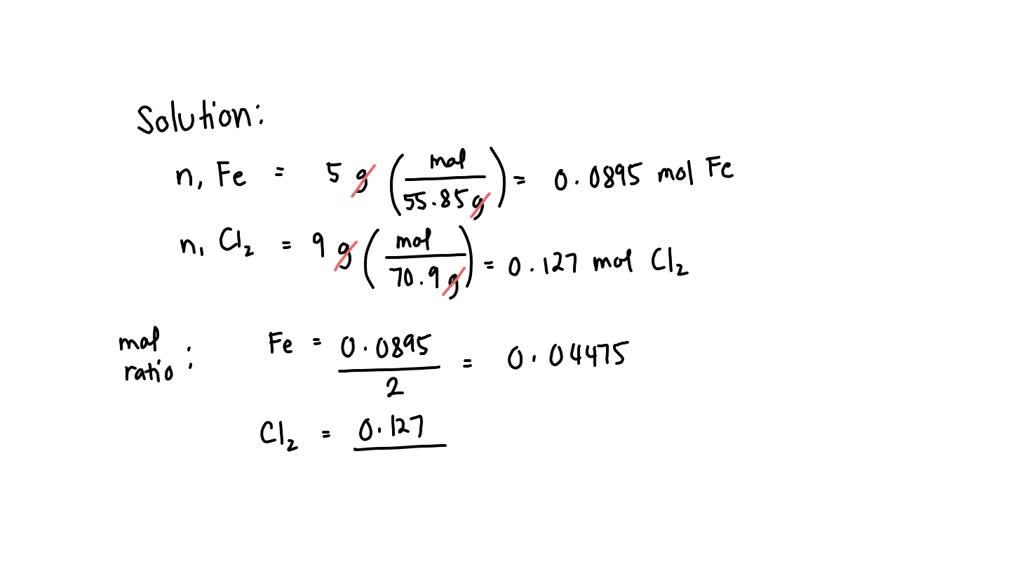 Solution:
n, Fe = 5 g (mol / 55.85g) = 0.0895 mol Fe
n, Cl₂ = 9 g (mol / 70.9g) = 0.127 mol Cl₂
mol ratio: Fe = 0.0895 / 2 = 0.04475
Cl₂ = 0.127